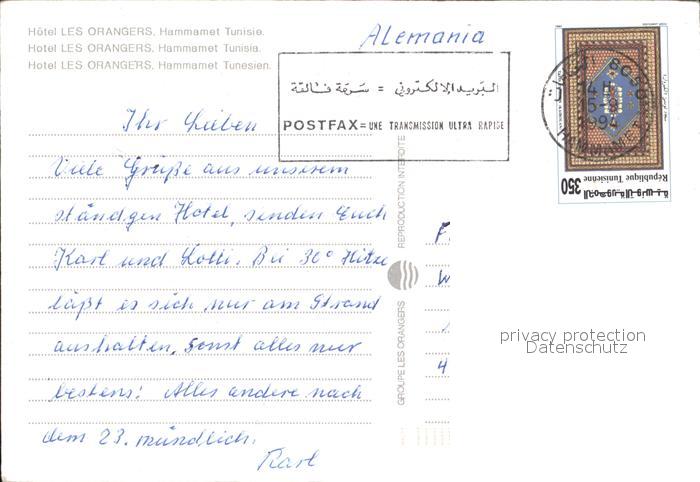 Hôtel LES ORANGERS. Hammamet Tunisie.
Hotel LES ORANGERS. Hammamet Tunisia.
Hotel LES ORANGERS. Hammamet Tunesien.
Alemania
البريد الإلكتروني = سرعة فائقة
POSTFAX = UNE TRANSMISSION ULTRA RAPIDE
1994
HAMMAMET
350
République Tunisienne
الجمهورية التونسية
Ihr Lieben
Viele Grüße aus unserem
ständgen Hotel, senden Euch
Karl und Lolli. Bei 36° Hitze
läßt es sich nur am Strand
aushalten, sonst alles nur
bestens! Alles andere nach
dem 23. mündlich.
Karl
REPRODUCTION INTERDITE
GROUPE LES ORANGERS
privacy protection
Datenschutz